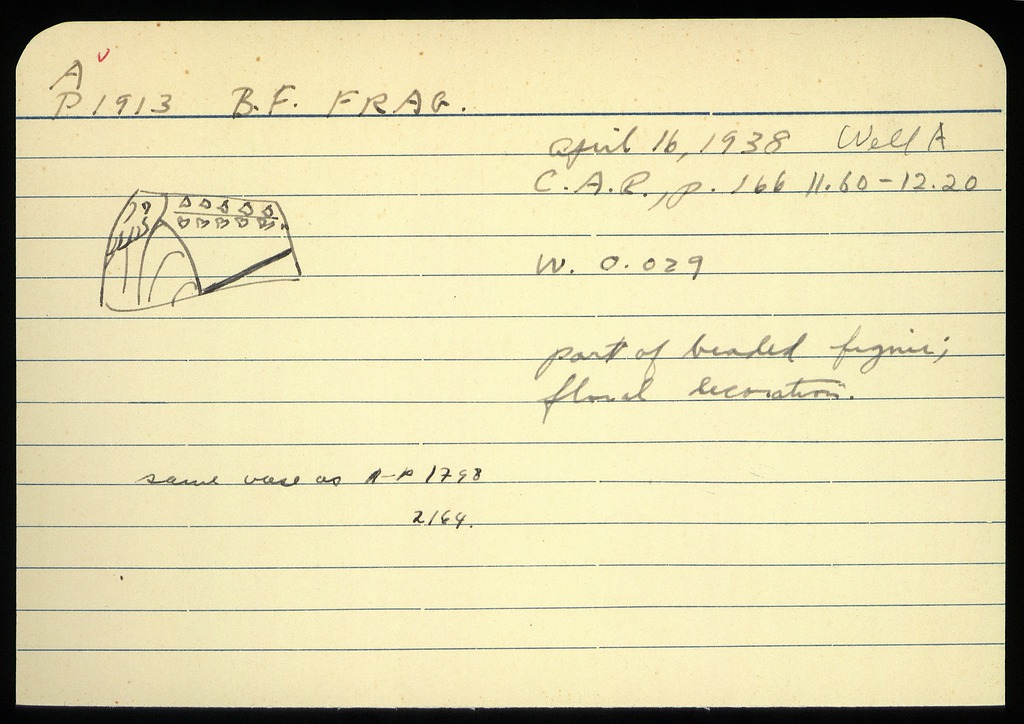 A
P 1913 B.F. FRAG.
April 16, 1938 Well A
C.A.R., p. 166 11.60-12.20
W. 0.029
part of bearded figure;
floral decoration.
same vase as A-P 1798
2164.